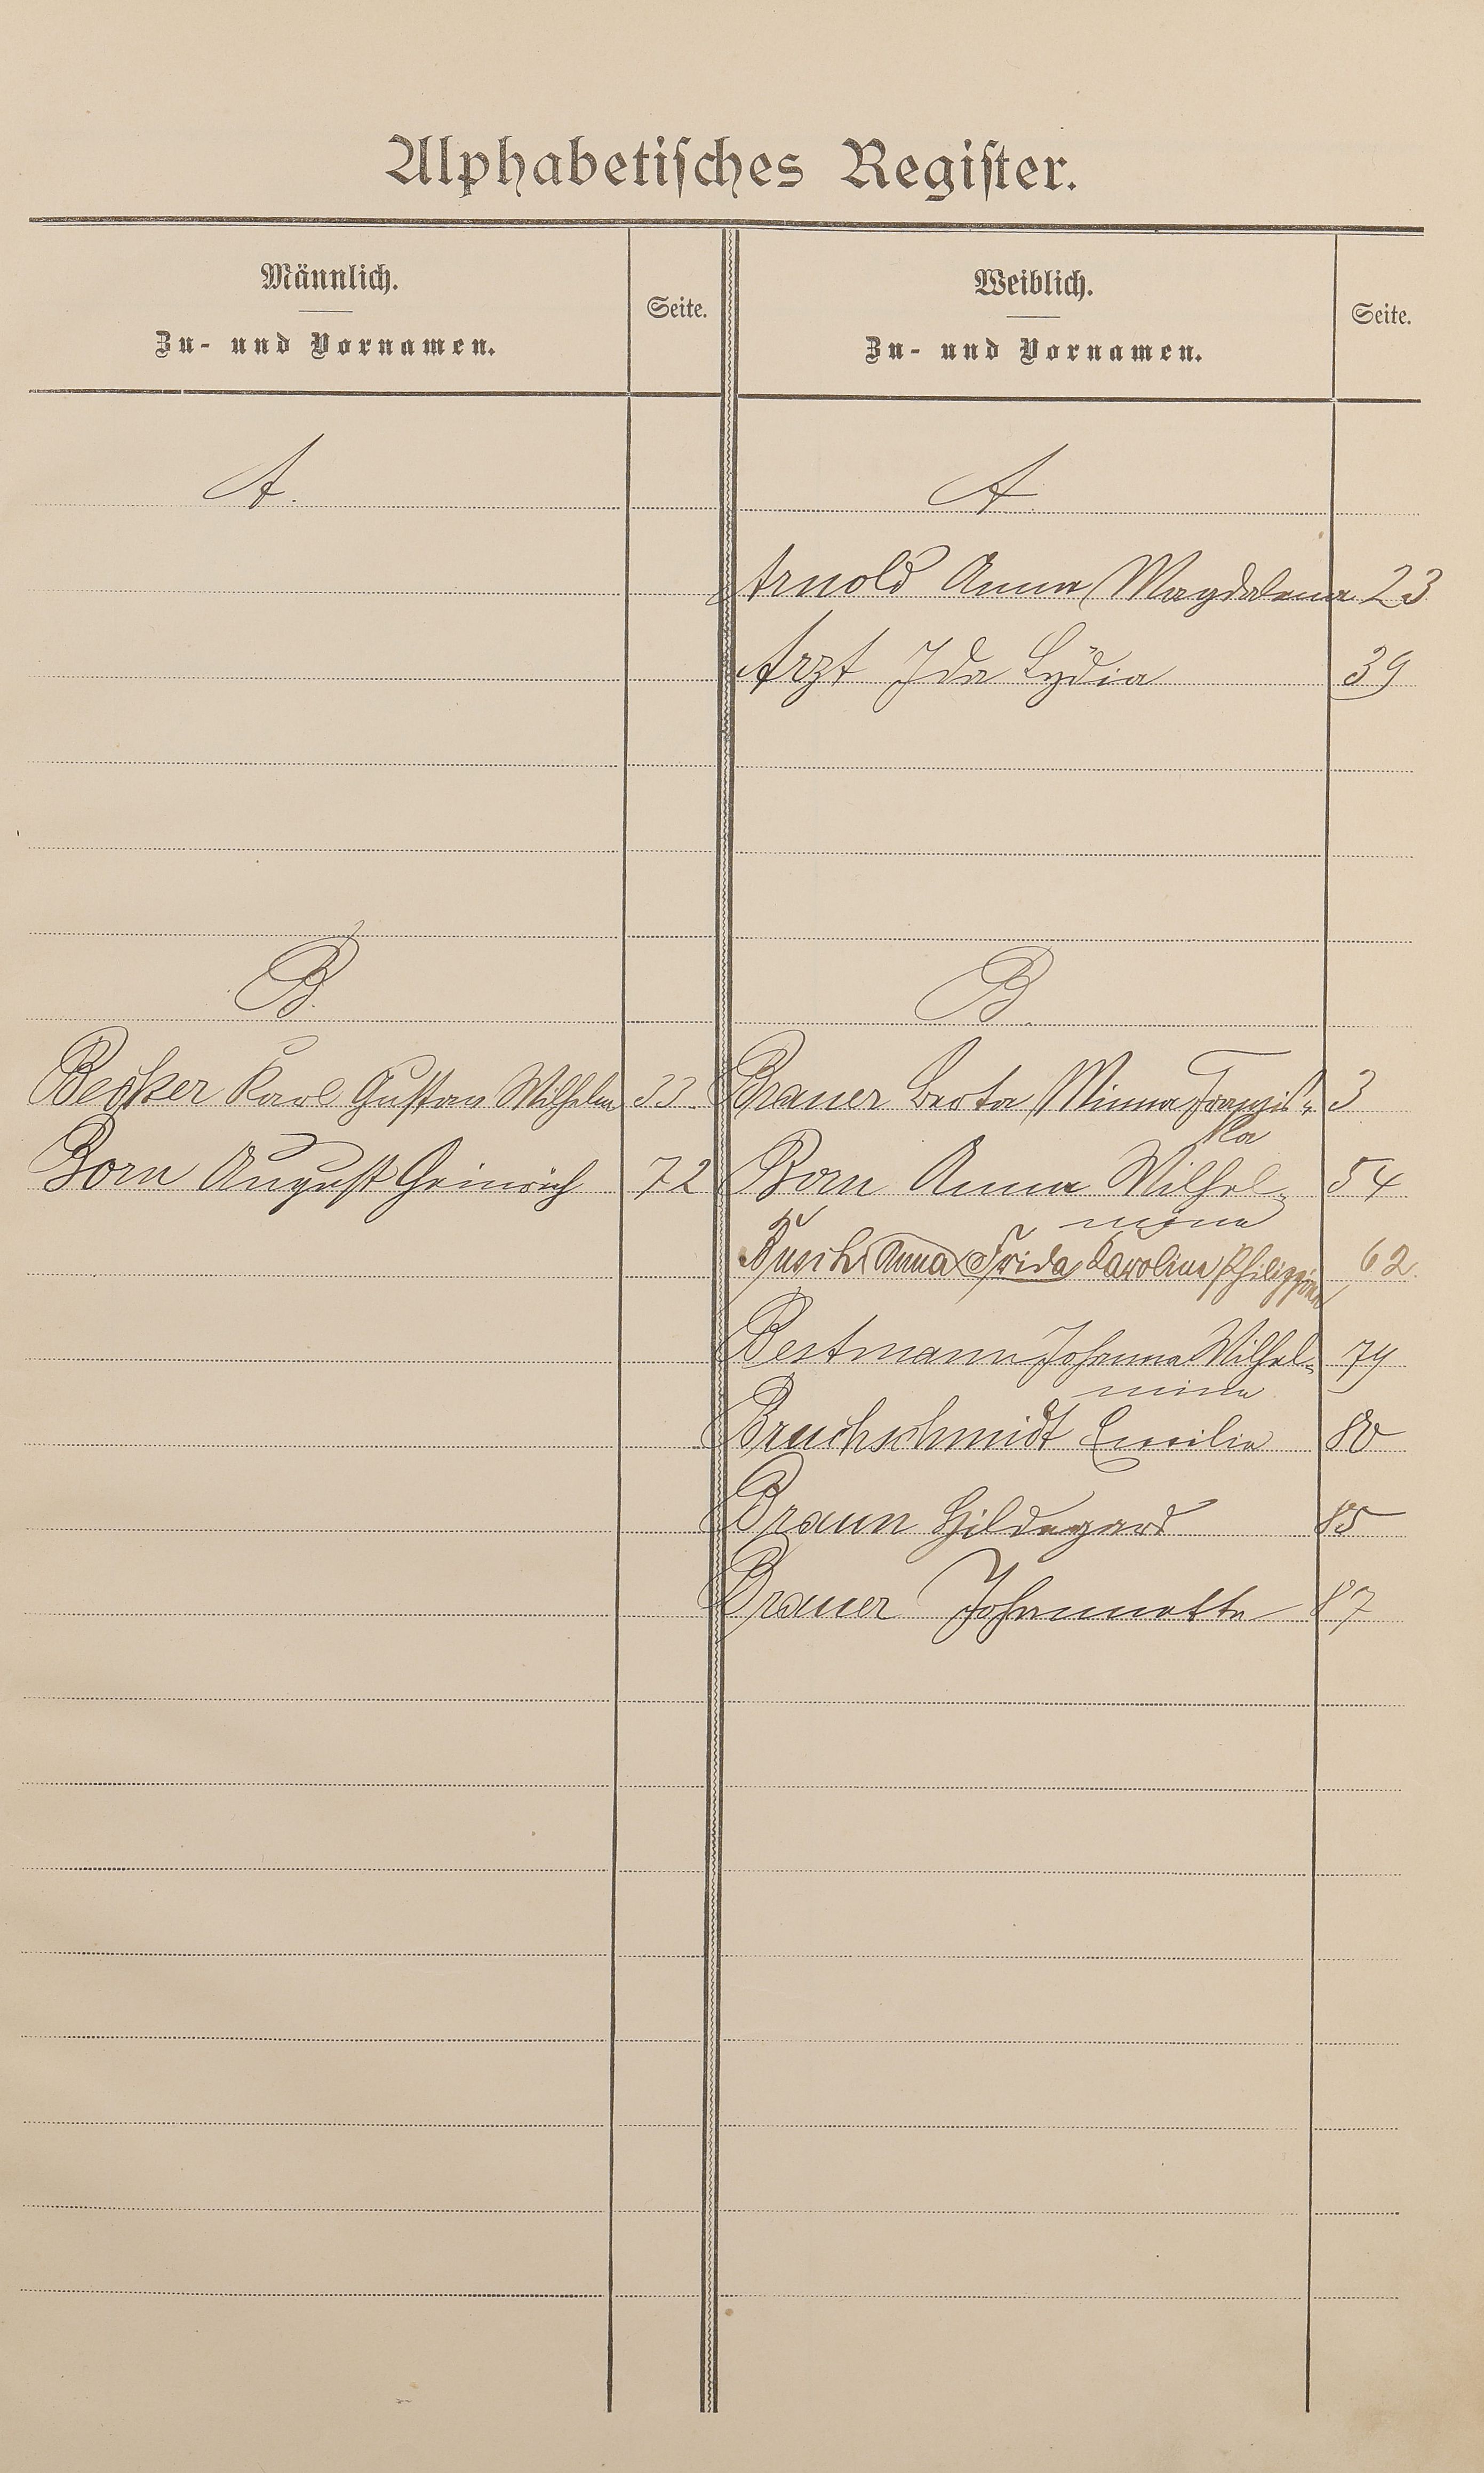 Alphabetisches Register.
Männlich.
Zu- und Vornamen.
Seite.
Weiblich.
Zu- und Vornamen.
Seite.
A.
A.
Arnold Anna Magdalena 23
Arzt Ida Lÿdia 39
B.
B.
Becker Karl Gustav Wilhelm 33
Brauer Berta Minna Franzis-
ka 3
Born August Heinrich 72
Born Anna Wilhel-
mine 54
Busch Anna Frida Karoline Philippine 62.
Bestmann Johanna Wilhel-
mine 79
Bruchschmidt Emilie 80
Braun Hildegard 85
Brauer Johannette 87